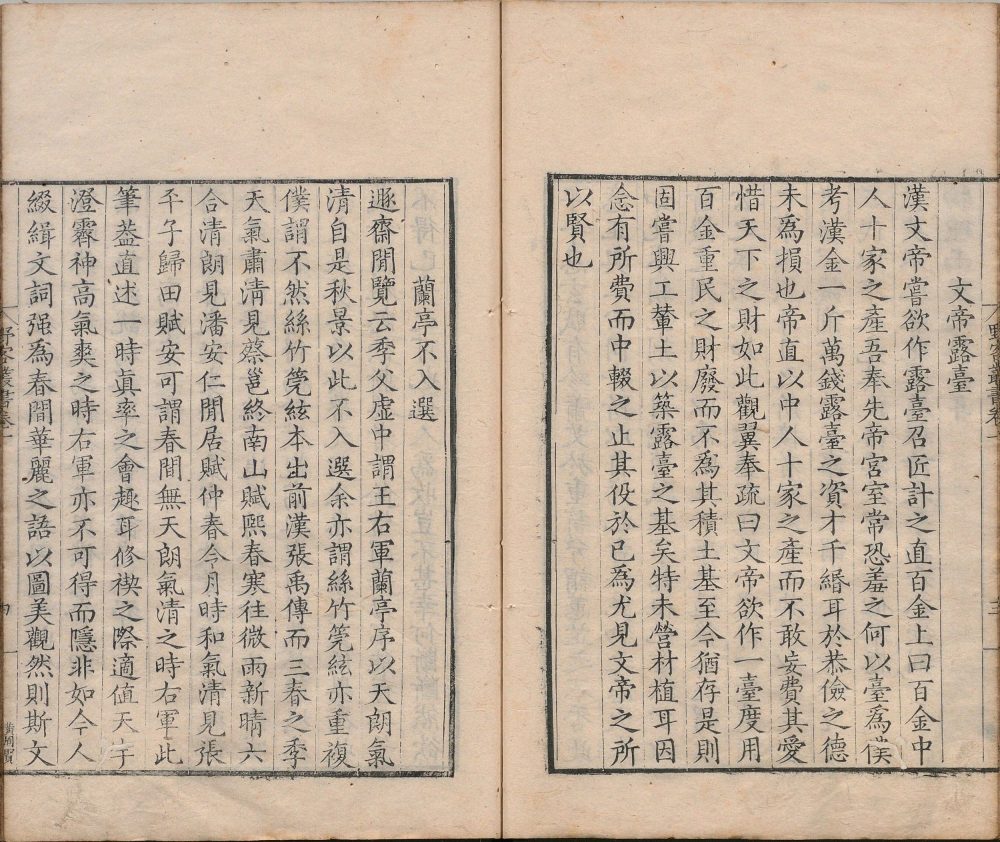 文帝露臺
漢文帝嘗欲作露臺召匠計之直百金上曰百金中
人十家之產吾奉先帝宮室常恐羞之何以臺爲僕
考漢金一斤萬錢露臺之資才千緡耳於恭儉之德
未爲損也帝直以中人十家之產而不敢妄費其愛
惜天下之財如此觀翼奉疏曰文帝欲作一臺度用
百金重民之財廢而不爲其積土基至今猶存是則
固嘗興工輦土以築露臺之基矣特未營材植耳因
念有所費而中輟之止其役於已爲尤見文帝之所
以賢也
三
蘭亭不入選
遯齋閒覽云季父虛中謂王右軍蘭亭序以天朗氣
清自是秋景以此不入選余亦謂絲竹筦絃亦重複
僕謂不然絲竹筦絃本出前漢張禹傳而三春之季
天氣肅清見蔡邕終南山賦熙春寒往微雨新晴六
合清朗見潘安仁閒居賦仲春令月時和氣清見張
平子歸田賦安可謂春閒無天朗氣清之時右軍此
筆葢直述一時眞率之會趣耳修禊之際適值天宇
澄霽神高氣爽之時右軍亦不可得而隱非如今人
綴緝文詞强爲春閒華麗之語以圖美觀然則斯文
野客叢書卷一
四